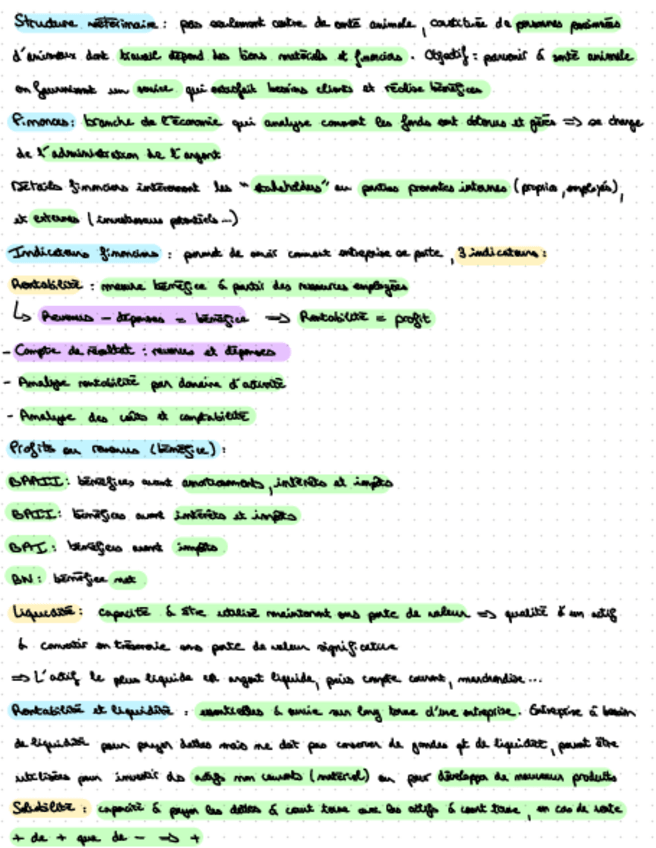 Structure vétérinaire : pas seulement centre de santé animale, constituée de personnes passionnées
d'animaux dont travail dépend des biens matériels et financiers. Objectif : parvenir à santé animale
en fournissant un service qui satisfait besoins clients et réalise bénéfices
Finances : branche de l'économie qui analyse comment les fonds sont obtenus et gérés => se charge
de l'administration de l'argent
Détails financiers intéressent les "stakeholders" ou parties prenantes internes (proprio, employés),
et externes (investisseurs potentiels...)
Indicateurs financiers : permet de savoir comment entreprise se porte, 3 indicateurs :
Rentabilité : mesure bénéfice à partir des ressources employées
↳ Revenus - dépenses = bénéfice => Rentabilité = profit
- Compte de résultat : revenus et dépenses
- Analyse rentabilité par domaine d'activité
- Analyse des coûts et comptabilité
Profits ou revenus (bénéfice) :
BAAII : bénéfices avant amortissements, intérêts et impôts
BAII : bénéfices avant intérêts et impôts
BAI : bénéfices avant impôts
BN : bénéfice net
Liquidité : capacité à être utilisé maintenant sans perte de valeur => qualité d'un actif
à convertir en trésorerie sans perte de valeur significative
=> L'actif le plus liquide est argent liquide, puis compte courant, marchandise...
Rentabilité et liquidité : essentielles à survie sur long terme d'une entreprise. Entreprise a besoin
de liquidité pour payer dettes mais ne doit pas conserver de grandes qt de liquidité, peuvent être
utilisées pour investir des actifs non courants (matériel) ou pour développer de nouveaux produits
Solvabilité : capacité à payer les dettes à court terme avec les actifs à court terme, en cas de
+ de + que de - => +